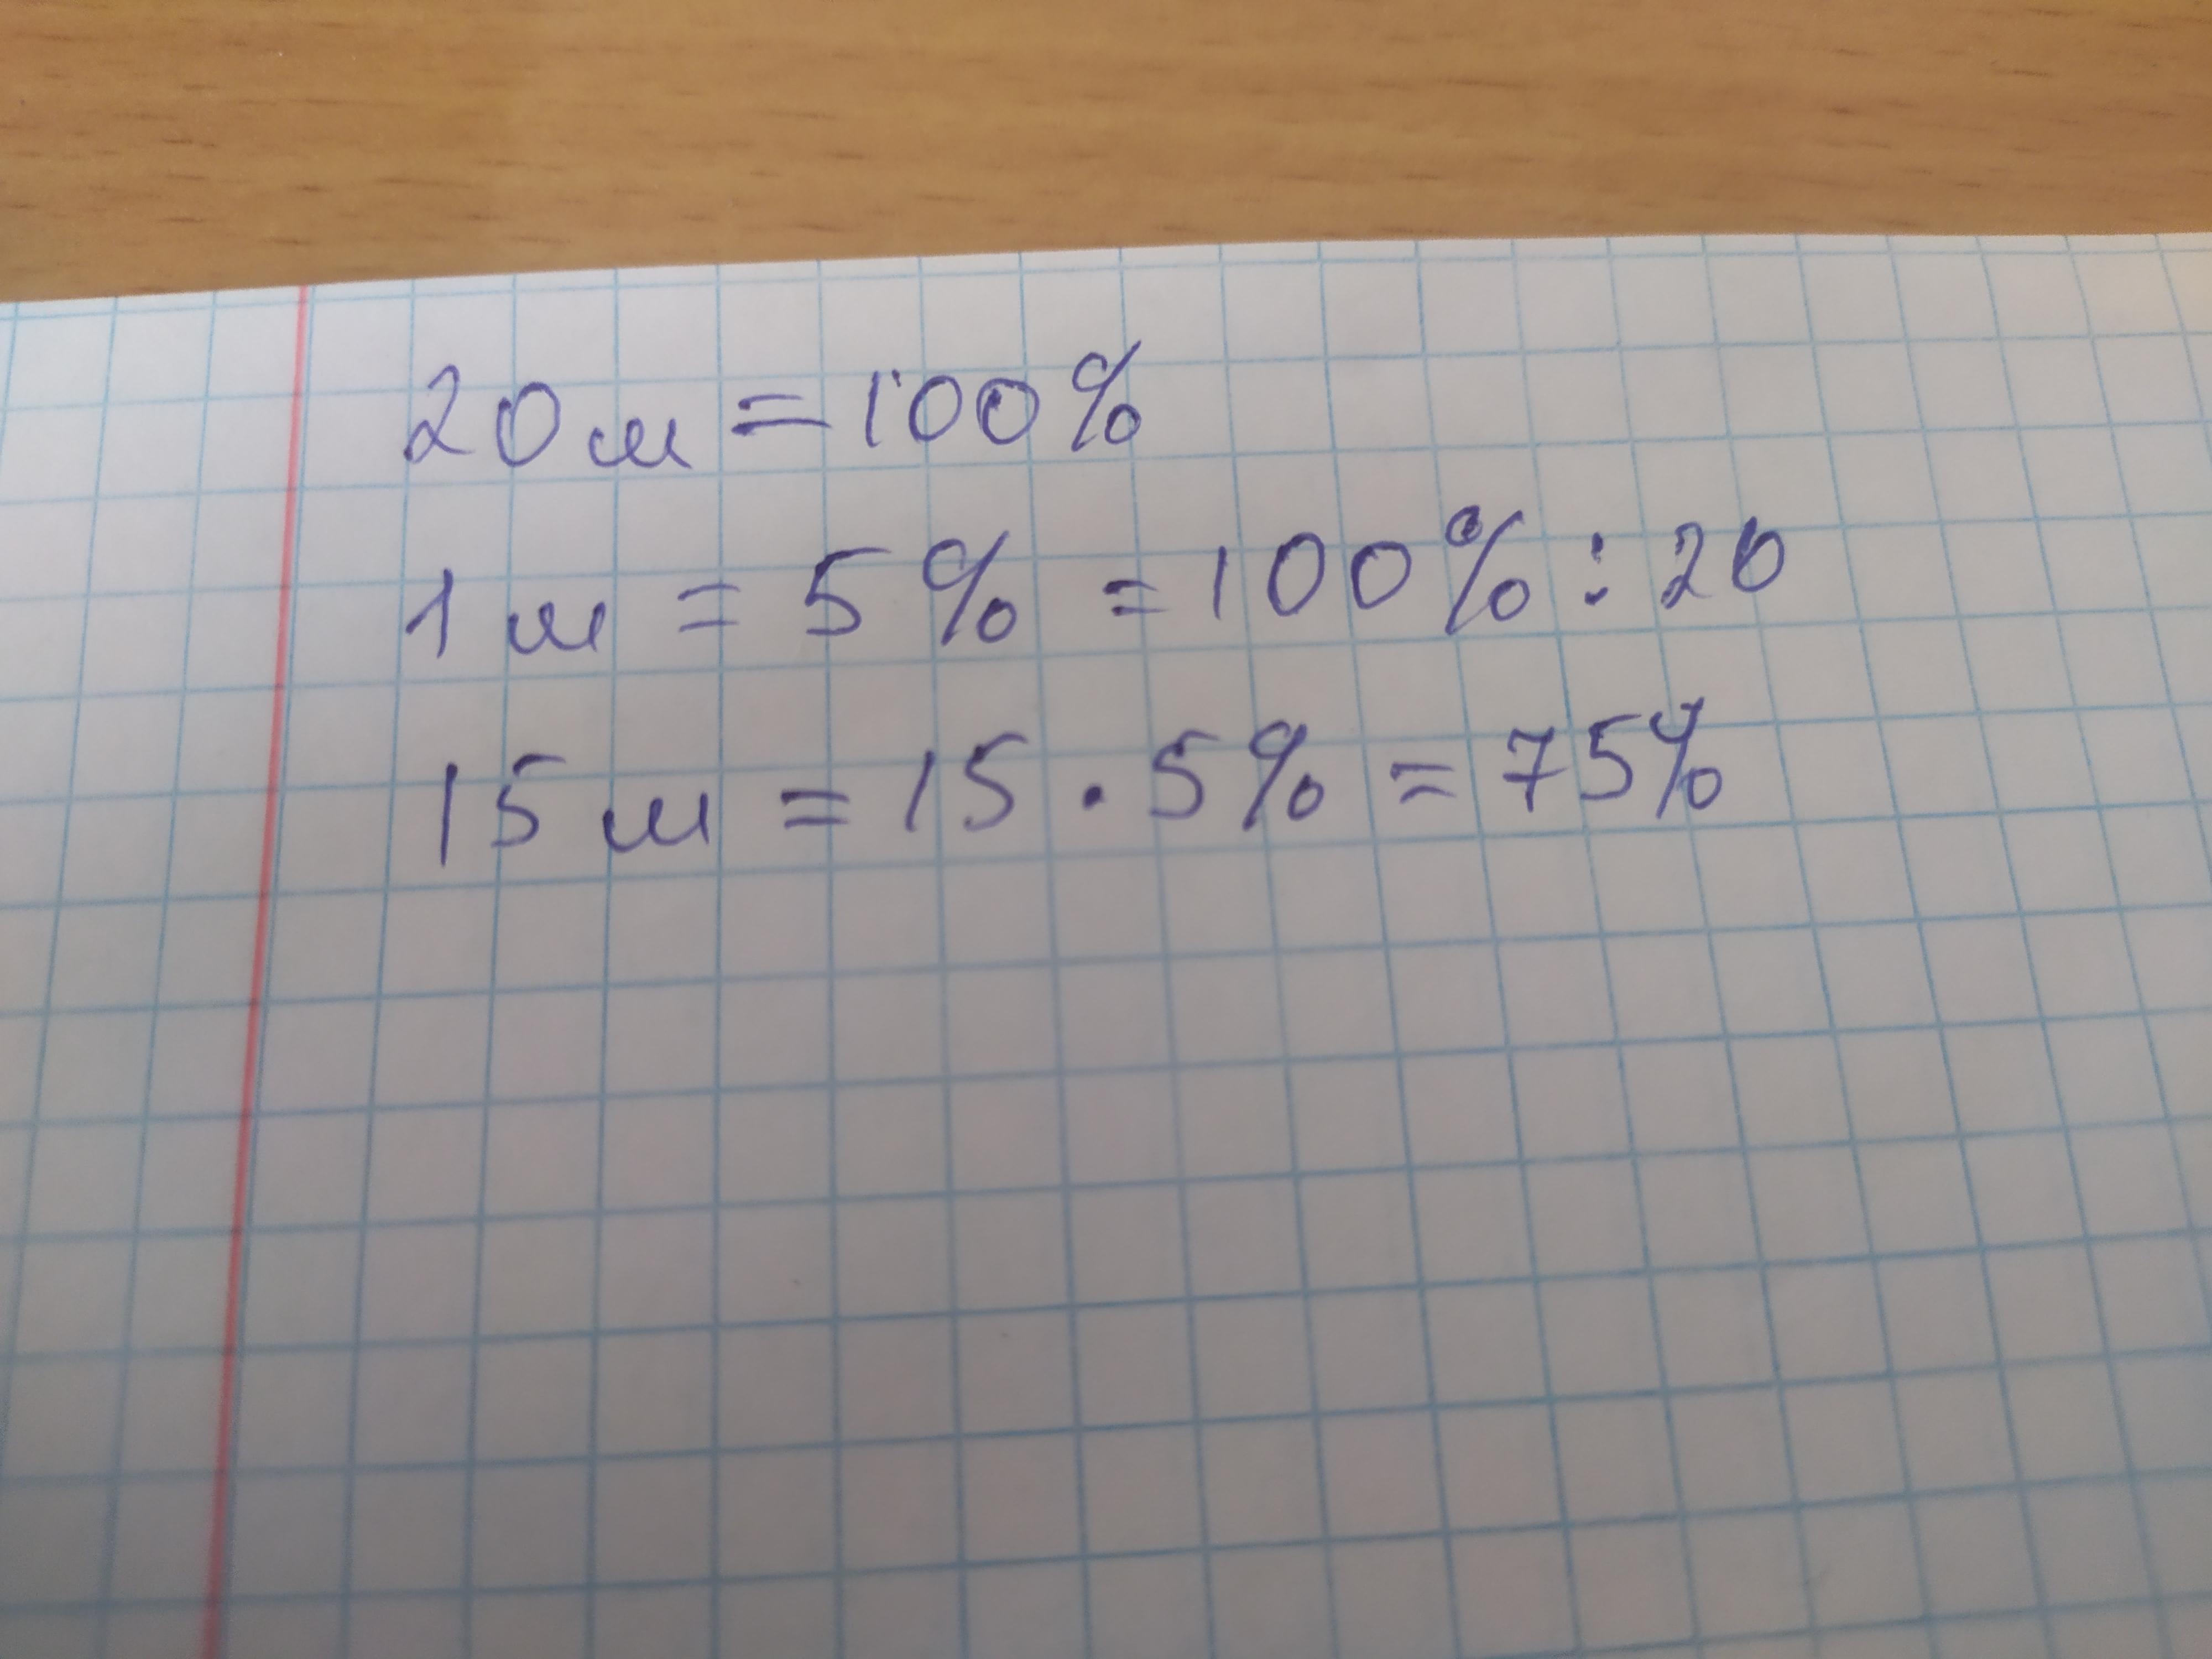 20 м = 100%
1 м = 5% = 100% : 20
15 м = 15 · 5% = 75%